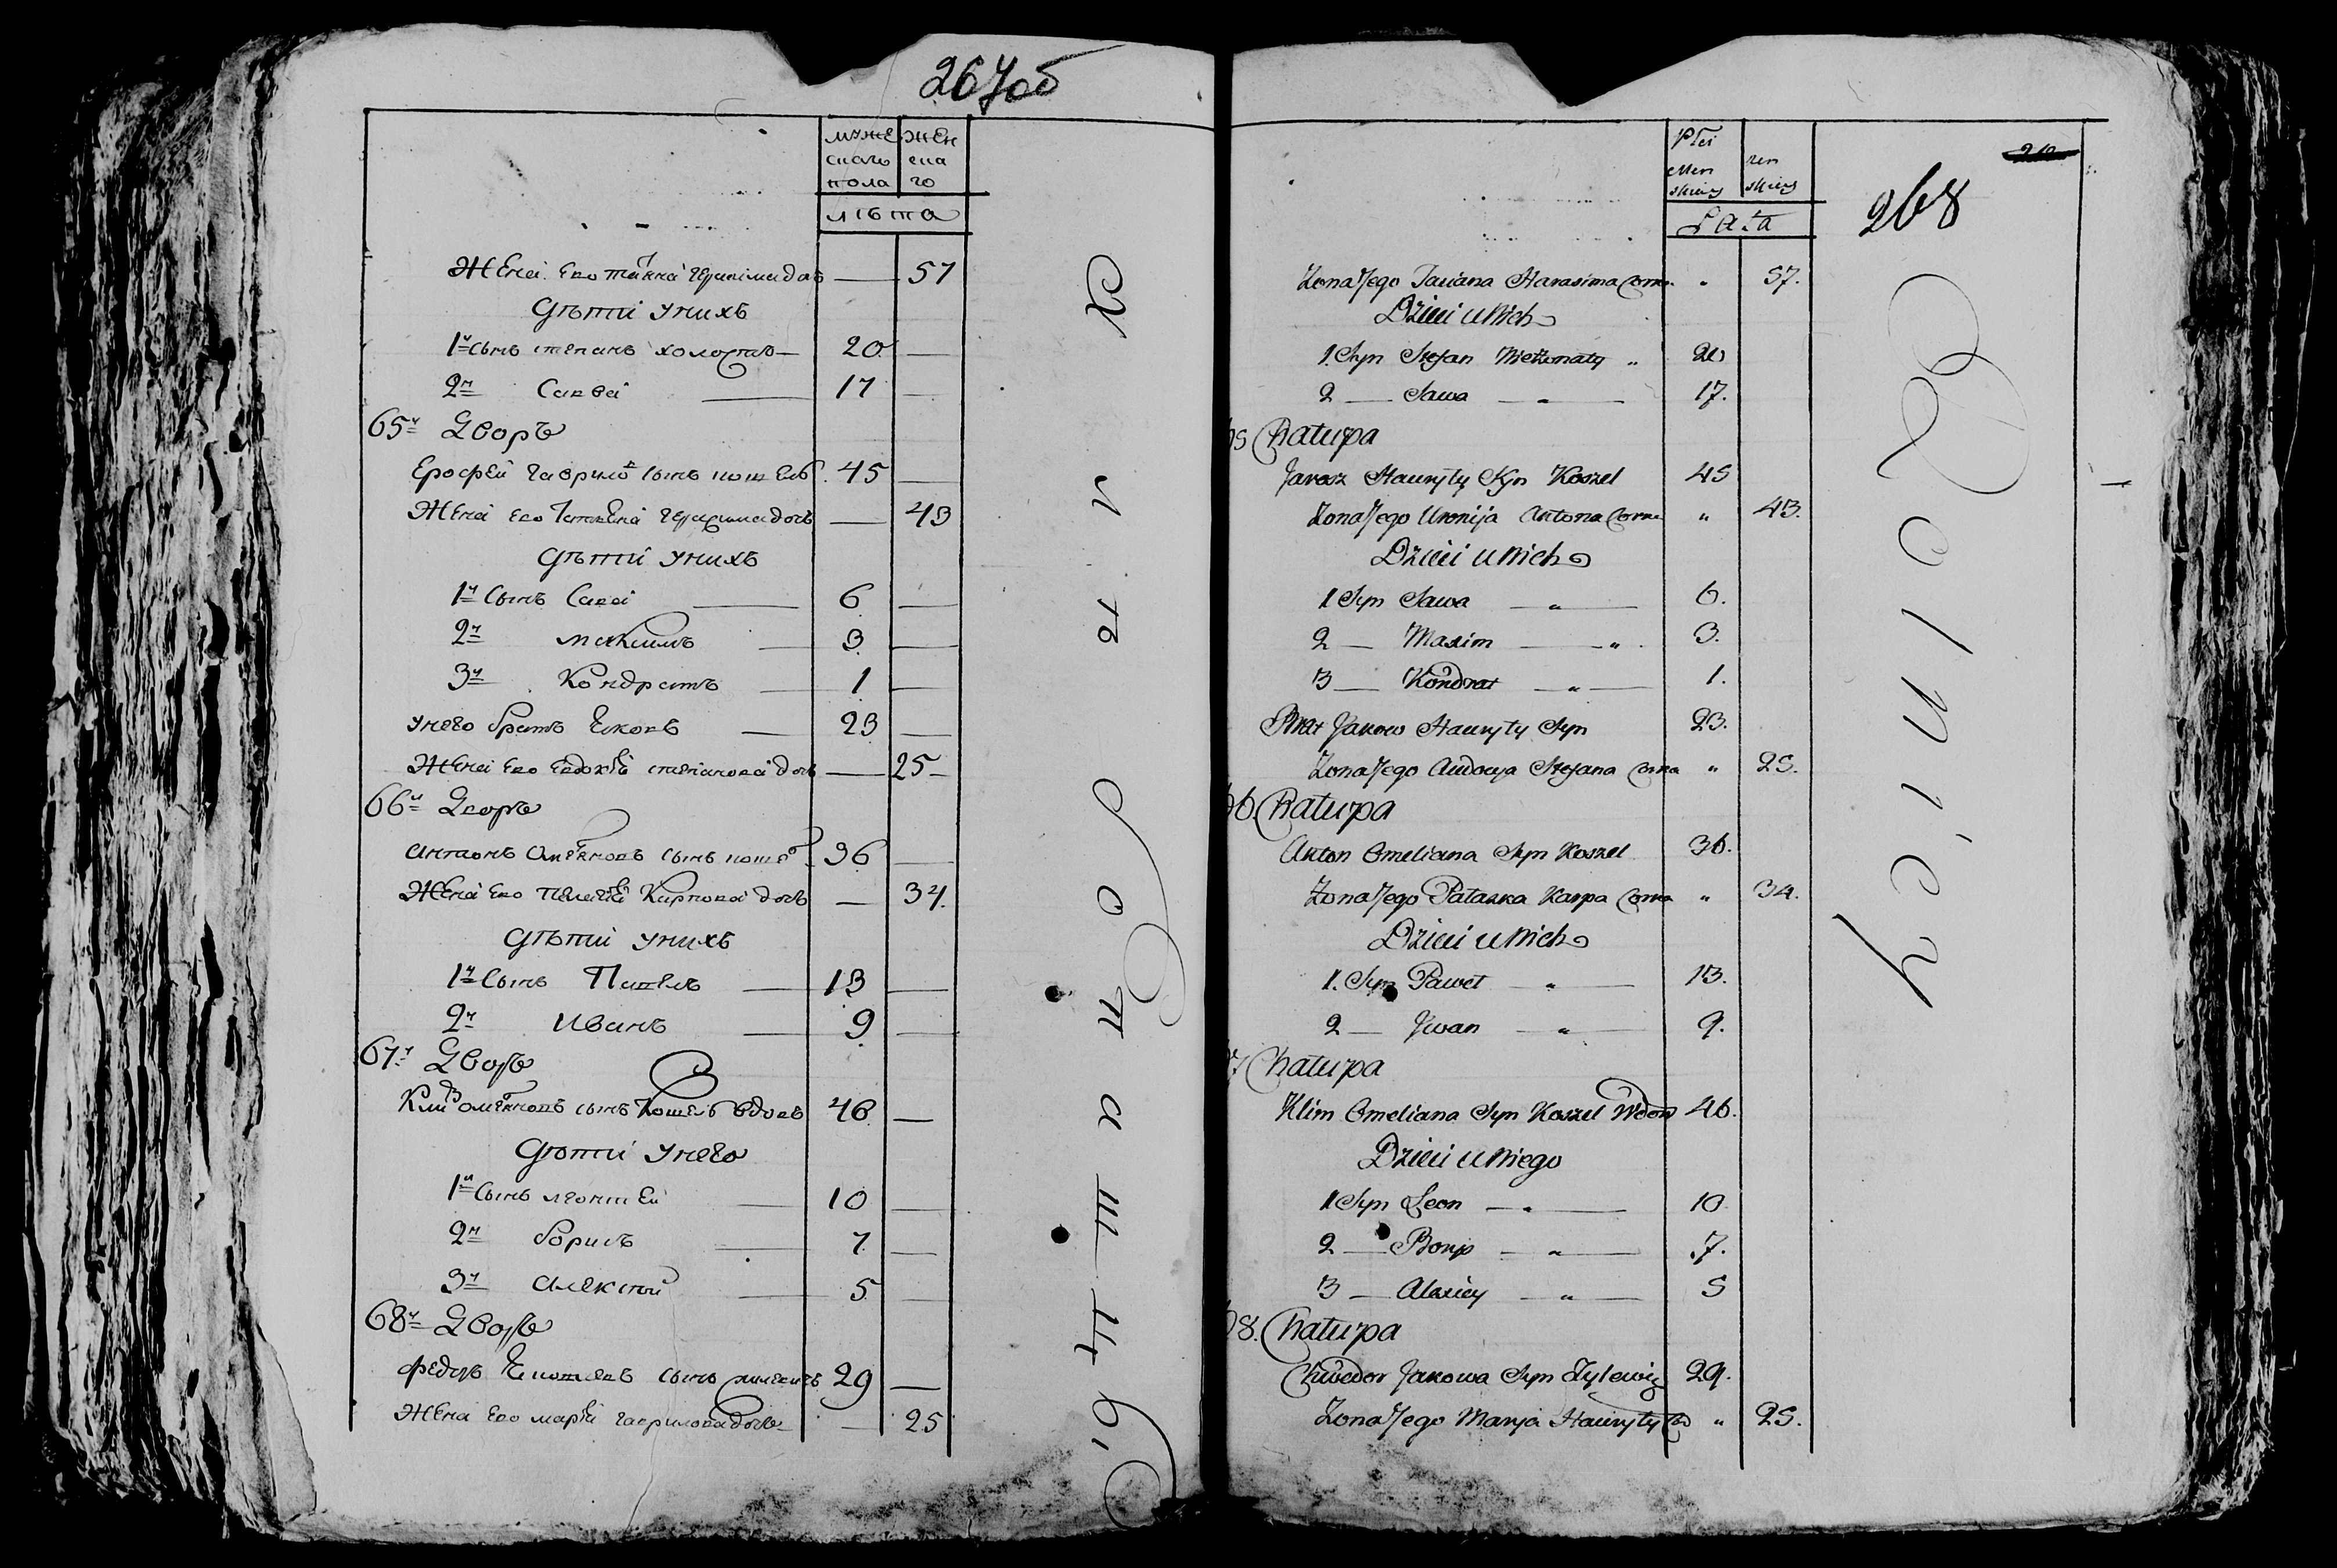 267об
муже жен
скаго ска
пола го
лѣта
Жена его татяна герасимова дочь — 57
Дѣти у нихъ
1й сынъ степанъ холостъ — 20 —
2й Савва — 17 —
65й Дворъ
Ерофей гаврилов сынъ кошель 45 —
Жена его герасимова дочь — 43
Дѣти у нихъ
1й Сынъ Сава — 6 —
2й максимъ — 3 —
3й Кондратъ — 1 —
у него братъ Яковъ — 23 —
Жена его евдокия степанова дочь — 25 —
66й Дворъ
антонъ омеляновъ сынъ кошел 36 —
Жена его пелагея Карпова дочь — 34.
Дѣти у нихъ
1й Сынъ Павелъ — 13 —
2й Иванъ — 9 —
67й Дворъ
Клим омеляновъ сынъ Кошель вдовъ 46 —
Дѣти у него
1й Сынъ леонтей — 10 —
2й борисъ — 7 —
3й алексѣй — 5 —
68й Дворъ
федоръ Яковлевъ сынъ 29 —
Жена его марья гаврилова дочь — 25
Płci
Męn skiey żen skiey
Lata
268
Żona Jego Taciana Harasima Corka " 57.
Dzieci u Nich
1. Syn Stefan Nieżonaty " 20
2 — Sawa — " — 17.
65 Chałupa
Jarosz Hawryły Syn Koszel 45
Żona Jego Uronija Antona Corka " 43.
Dzieci u Nich
1 Syn Sawa — " — 6.
2 — Maxim — " 3.
3 — Kondrat — " — 1.
Brat Jakow Hawryły Syn 23.
Żona Jego Audocya Stefana Corka " 25.
66. Chałupa
Anton Omeliana Syn Koszel 36.
Żona Jego Pałaszka Karpa Corka " 34.
Dzieci u Nich
1. Syn Paweł — " — 13.
2 — Jwan — " — 9.
67 Chałupa
Klim Omeliana Syn Koszel Wdow 46.
Dzieci u Niego
1 Syn Leon — " — 10
2 — Borys — " — 7.
3 — Alexiey — " — 5
68. Chałupa
Chwedor Jakowa Syn Zylewicz 29.
Żona Jego Marya Hawryły Co " 25.